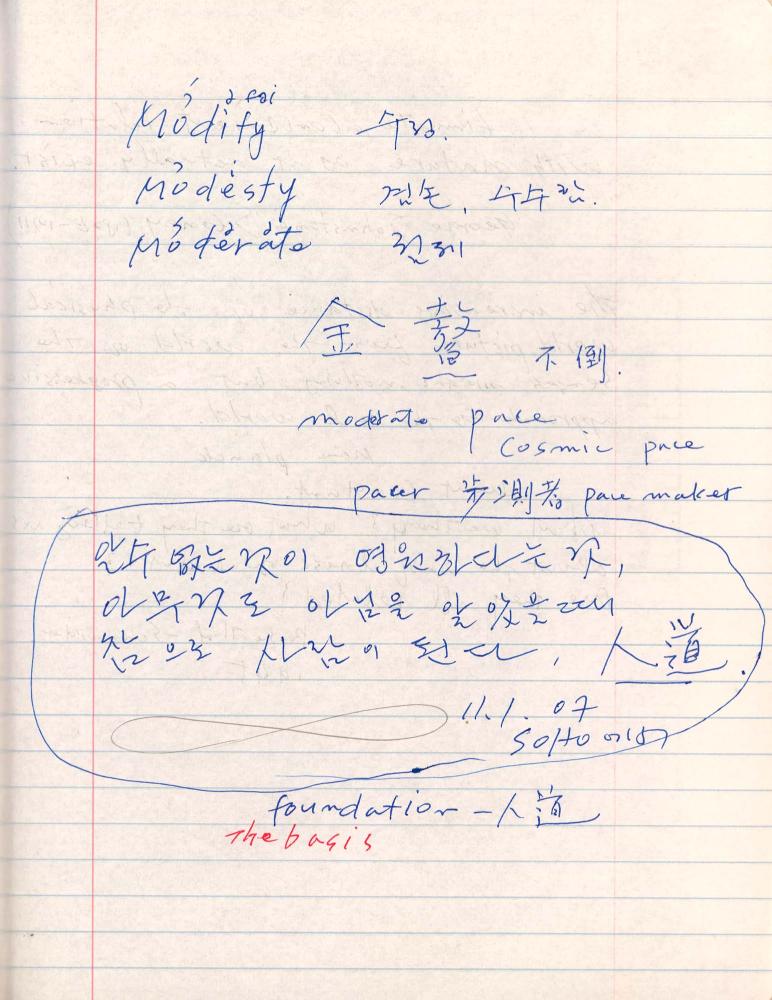 ə fai
Modify 수정.
Modesty 겸손, 수수함.
Moderate 절제
金
不倒.
moderate pace
Cosmic pace
pacer 步測者 pace maker
알수 없는것이 영원하다는 것,
아무것도 아님을 알았을때
참으로 사람이 된다, 人道.
11.1.07
SOHO에서
foundation - 人道
The basis